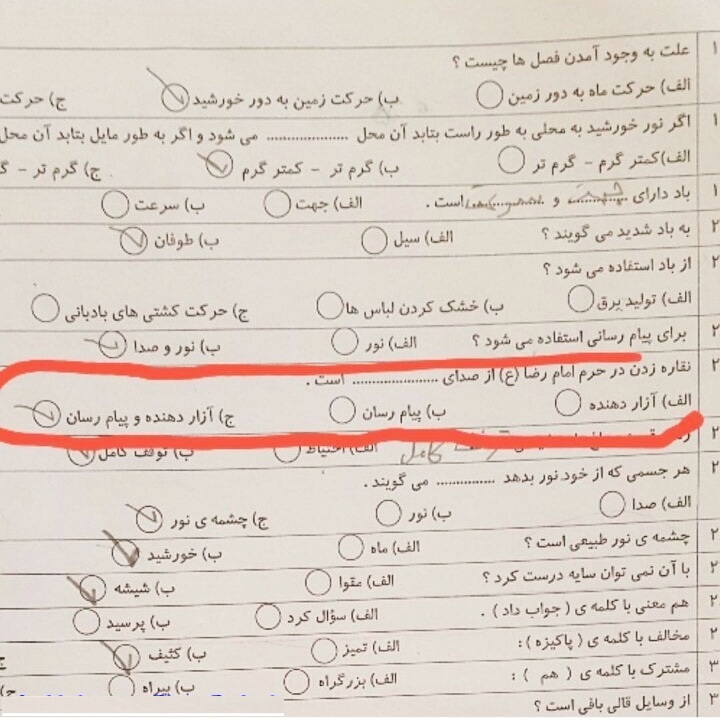 ۱ علت به وجود آمدن فصل ها چیست ؟
الف) حرکت ماه به دور زمین ب) حرکت زمین به دور خورشید ج) حرکت
۱ اگر نور خورشید به محلی به طور راست بتابد آن محل .................... می شود و اگر به طور مایل بتابد آن محل
الف)کمتر گرم – گرم تر ب) گرم تر – کمتر گرم ج) گرم تر –
۱ باد دارای .............. و ................ است .
الف) جهت ب) سرعت
۲ به باد شدید می گویند ؟
الف) سیل ب) طوفان
۲ از باد استفاده می شود ؟
الف) تولید برق ب) خشک کردن لباس ها ج) حرکت کشتی های بادبانی
۲ برای پیام رسانی استفاده می شود ؟
الف) نور ب) نور و صدا
۲ نقاره زدن در حرم امام رضا (ع) از صدای ...................... است .
الف) آزار دهنده ب) پیام رسان ج) آزار دهنده و پیام رسان
۲ کامل
الف) احتیاط ب) توقف کامل
۲ هر جسمی که از خود نور بدهد ............... می گویند .
الف) صدا ب) نور ج) چشمه ی نور
۲ چشمه ی نور طبیعی است ؟
الف) ماه ب) خورشید
۲ با آن نمی توان سایه درست کرد ؟
الف) مقوا ب) شیشه
۲ هم معنی با کلمه ی ( جواب داد ) .
الف) سؤال کرد ب) پرسید
۲ مخالف با کلمه ی ( پاکیزه ) :
الف) تمیز ب) کثیف
۳ مشترک با کلمه ی ( هم ) :
الف) بزرگراه ب) بیراه
۳ از وسایل قالی بافی است ؟